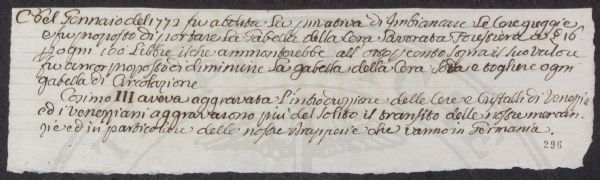 Del Gennaio del 1772 fu abolita la privativa di Imbiancare le Cere gregie
e fu proposto di portare la Gabella della Cera Lavorata Forestiera a § 16
p ogni 100 Libbre il che ammonterebbe all' otto p cento sopra il suo valore
fu ancor proposto di diminuire la gabella della Cera Soda e togliere ogni
gabella di Circolazione
Cosimo III aveva aggravata l'introduzione delle Cere e Cristalli di Venezia
ed i Veneziani aggravarono più del solito il transito delle nostre mercan
zie ed in particolare delle nostre Drapperie che vanno in Germania.
296